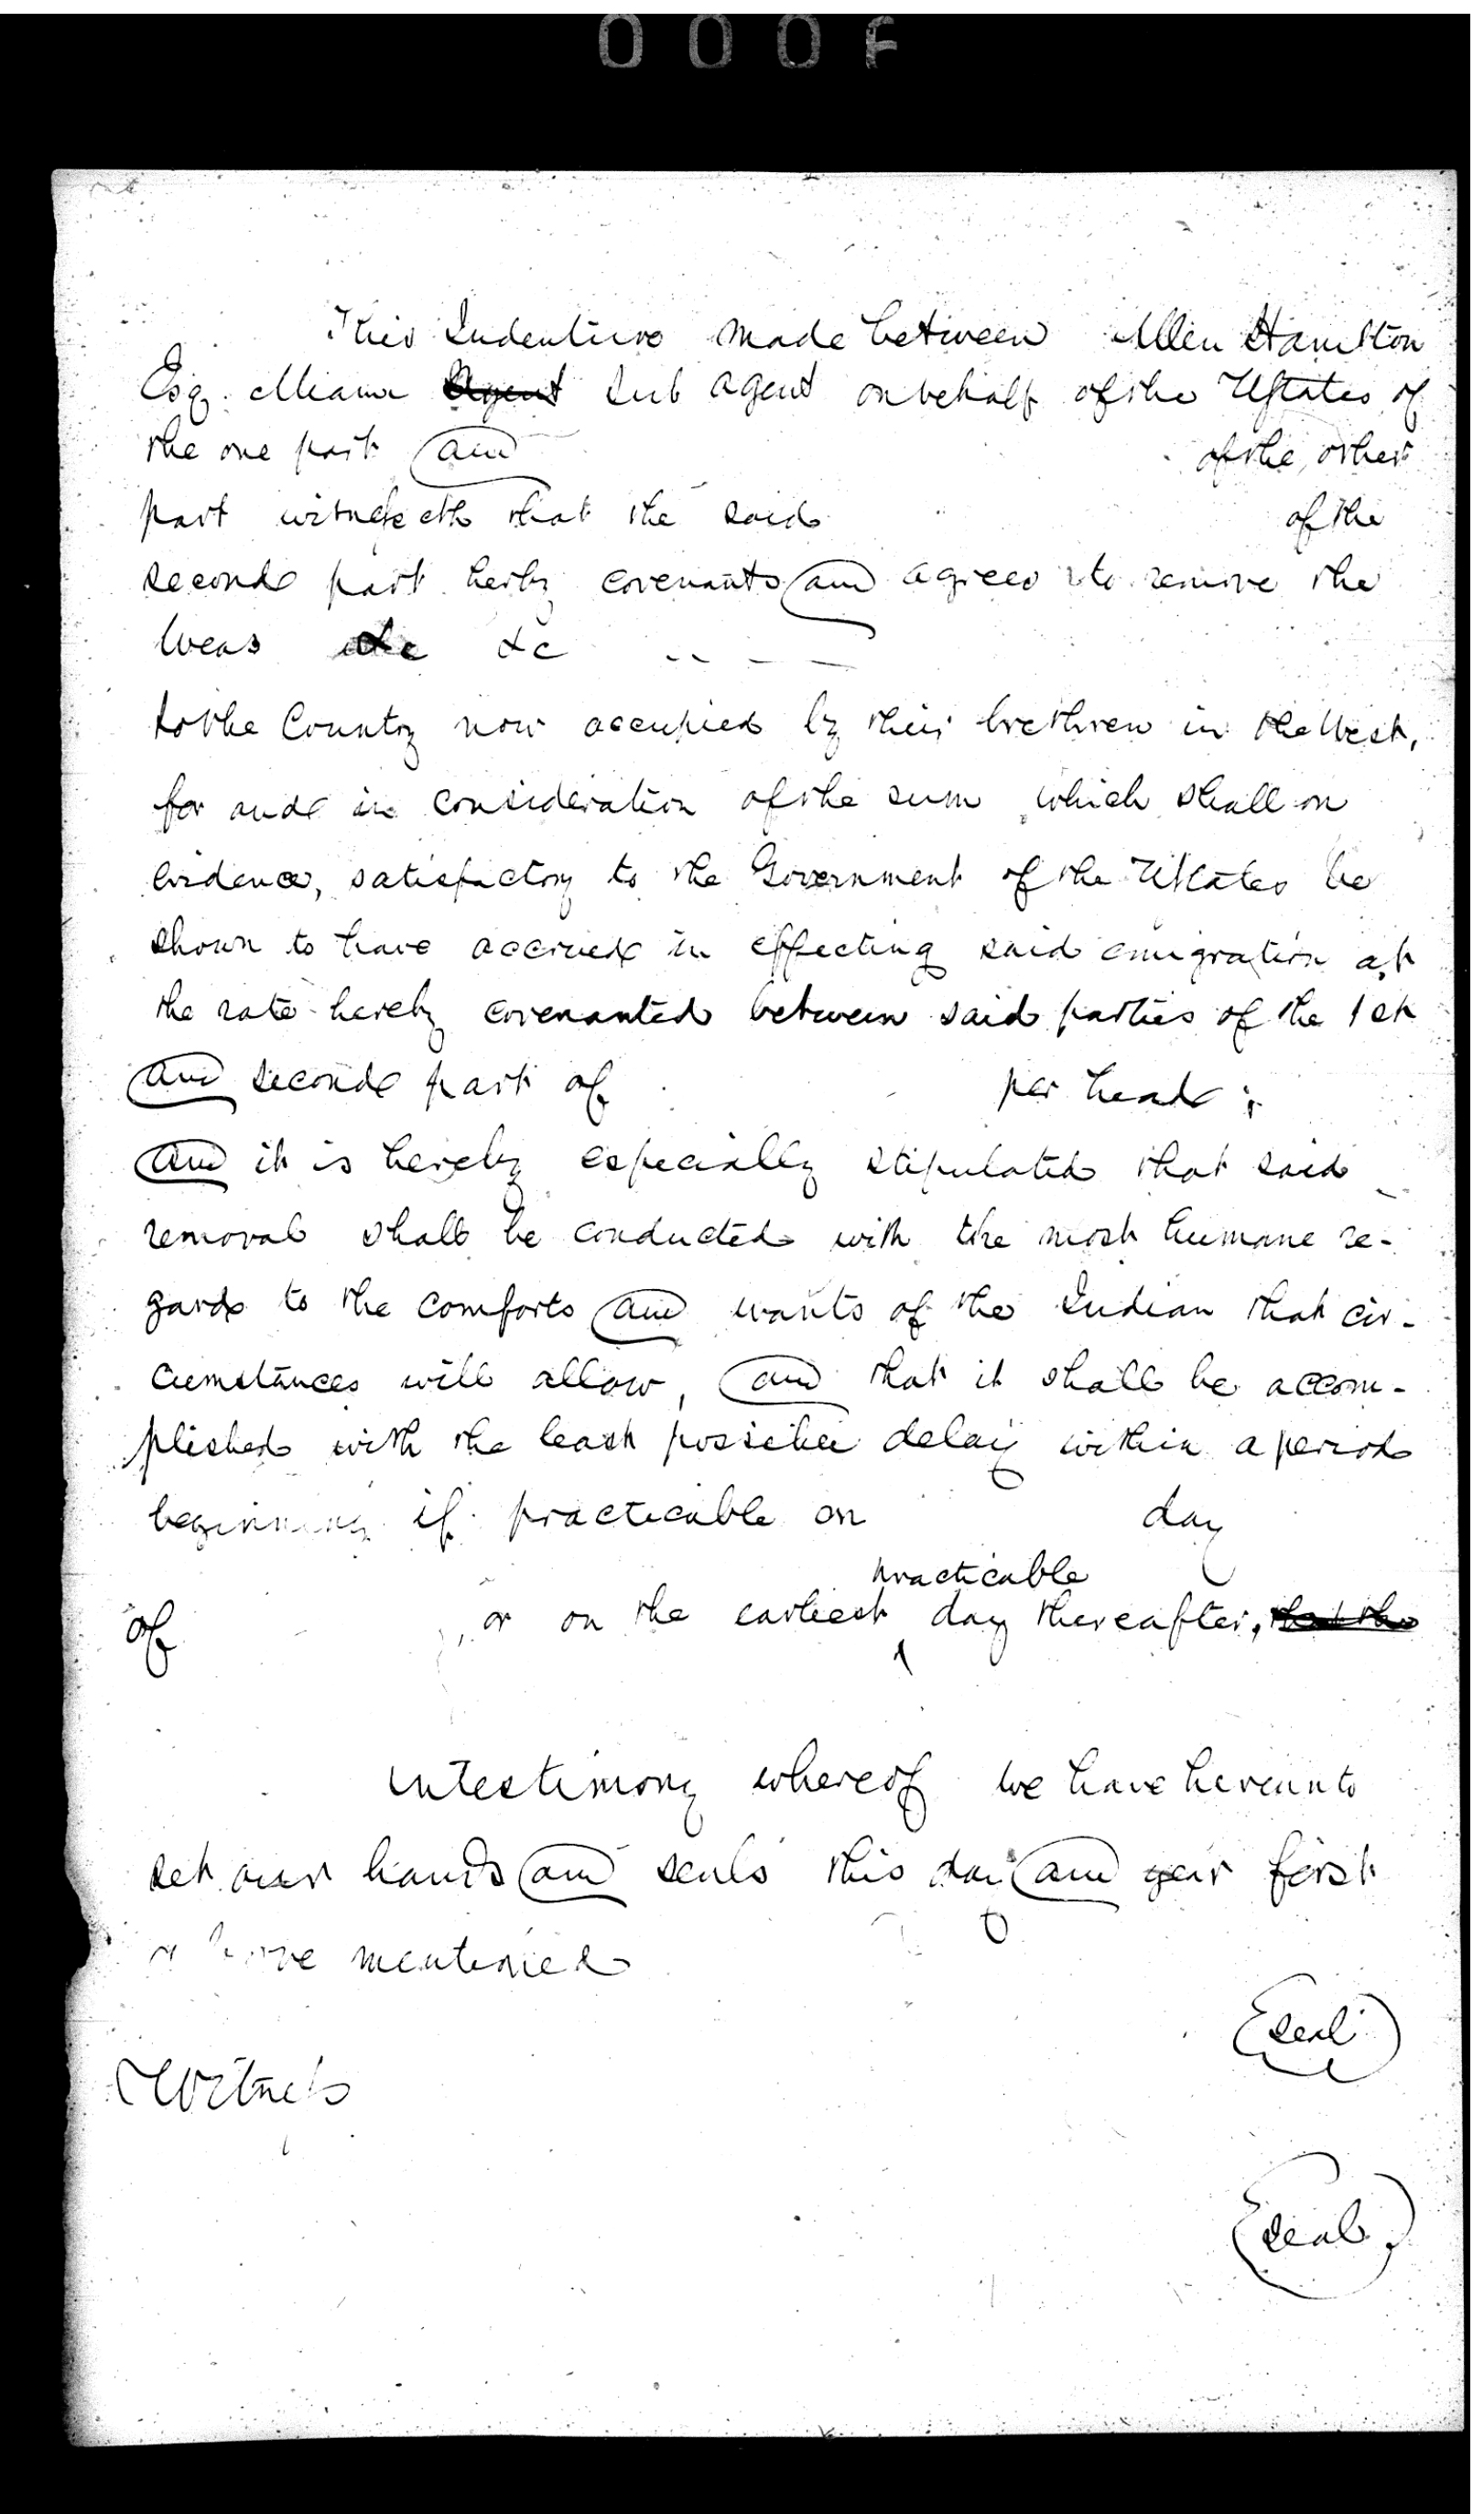 000F
This Indenture made between Allen Hamilton
Esq. Miami Agent Sub Agent on behalf of the UStates of
the one part and of the other
part witnesseth that the said of the
second part herby covenants and agrees to remove the
Weas &c &c - - - -
to the Country now occupied by their brethren in the West,
for and in consideration of the sum which shall on
evidence, satisfactory to the Government of the UStates be
shown to have accrued in effecting said emigration at
the rate hereby covenanted between said parties of the 1st
and second part of per head;
and it is hereby especially stipulated that said
removal shall be conducted with the most humane re-
gard to the comforts and wants of the Indian that cir-
cumstances will allow, and that it shall be accom-
plished with the least possible delay within a period
beginning if practicable on day
practicable
of , or on the earliest day thereafter, that the
In testimony whereof we have hereunto
set our hands and seals this day and year first
above mentioned
seal
Witness
seal